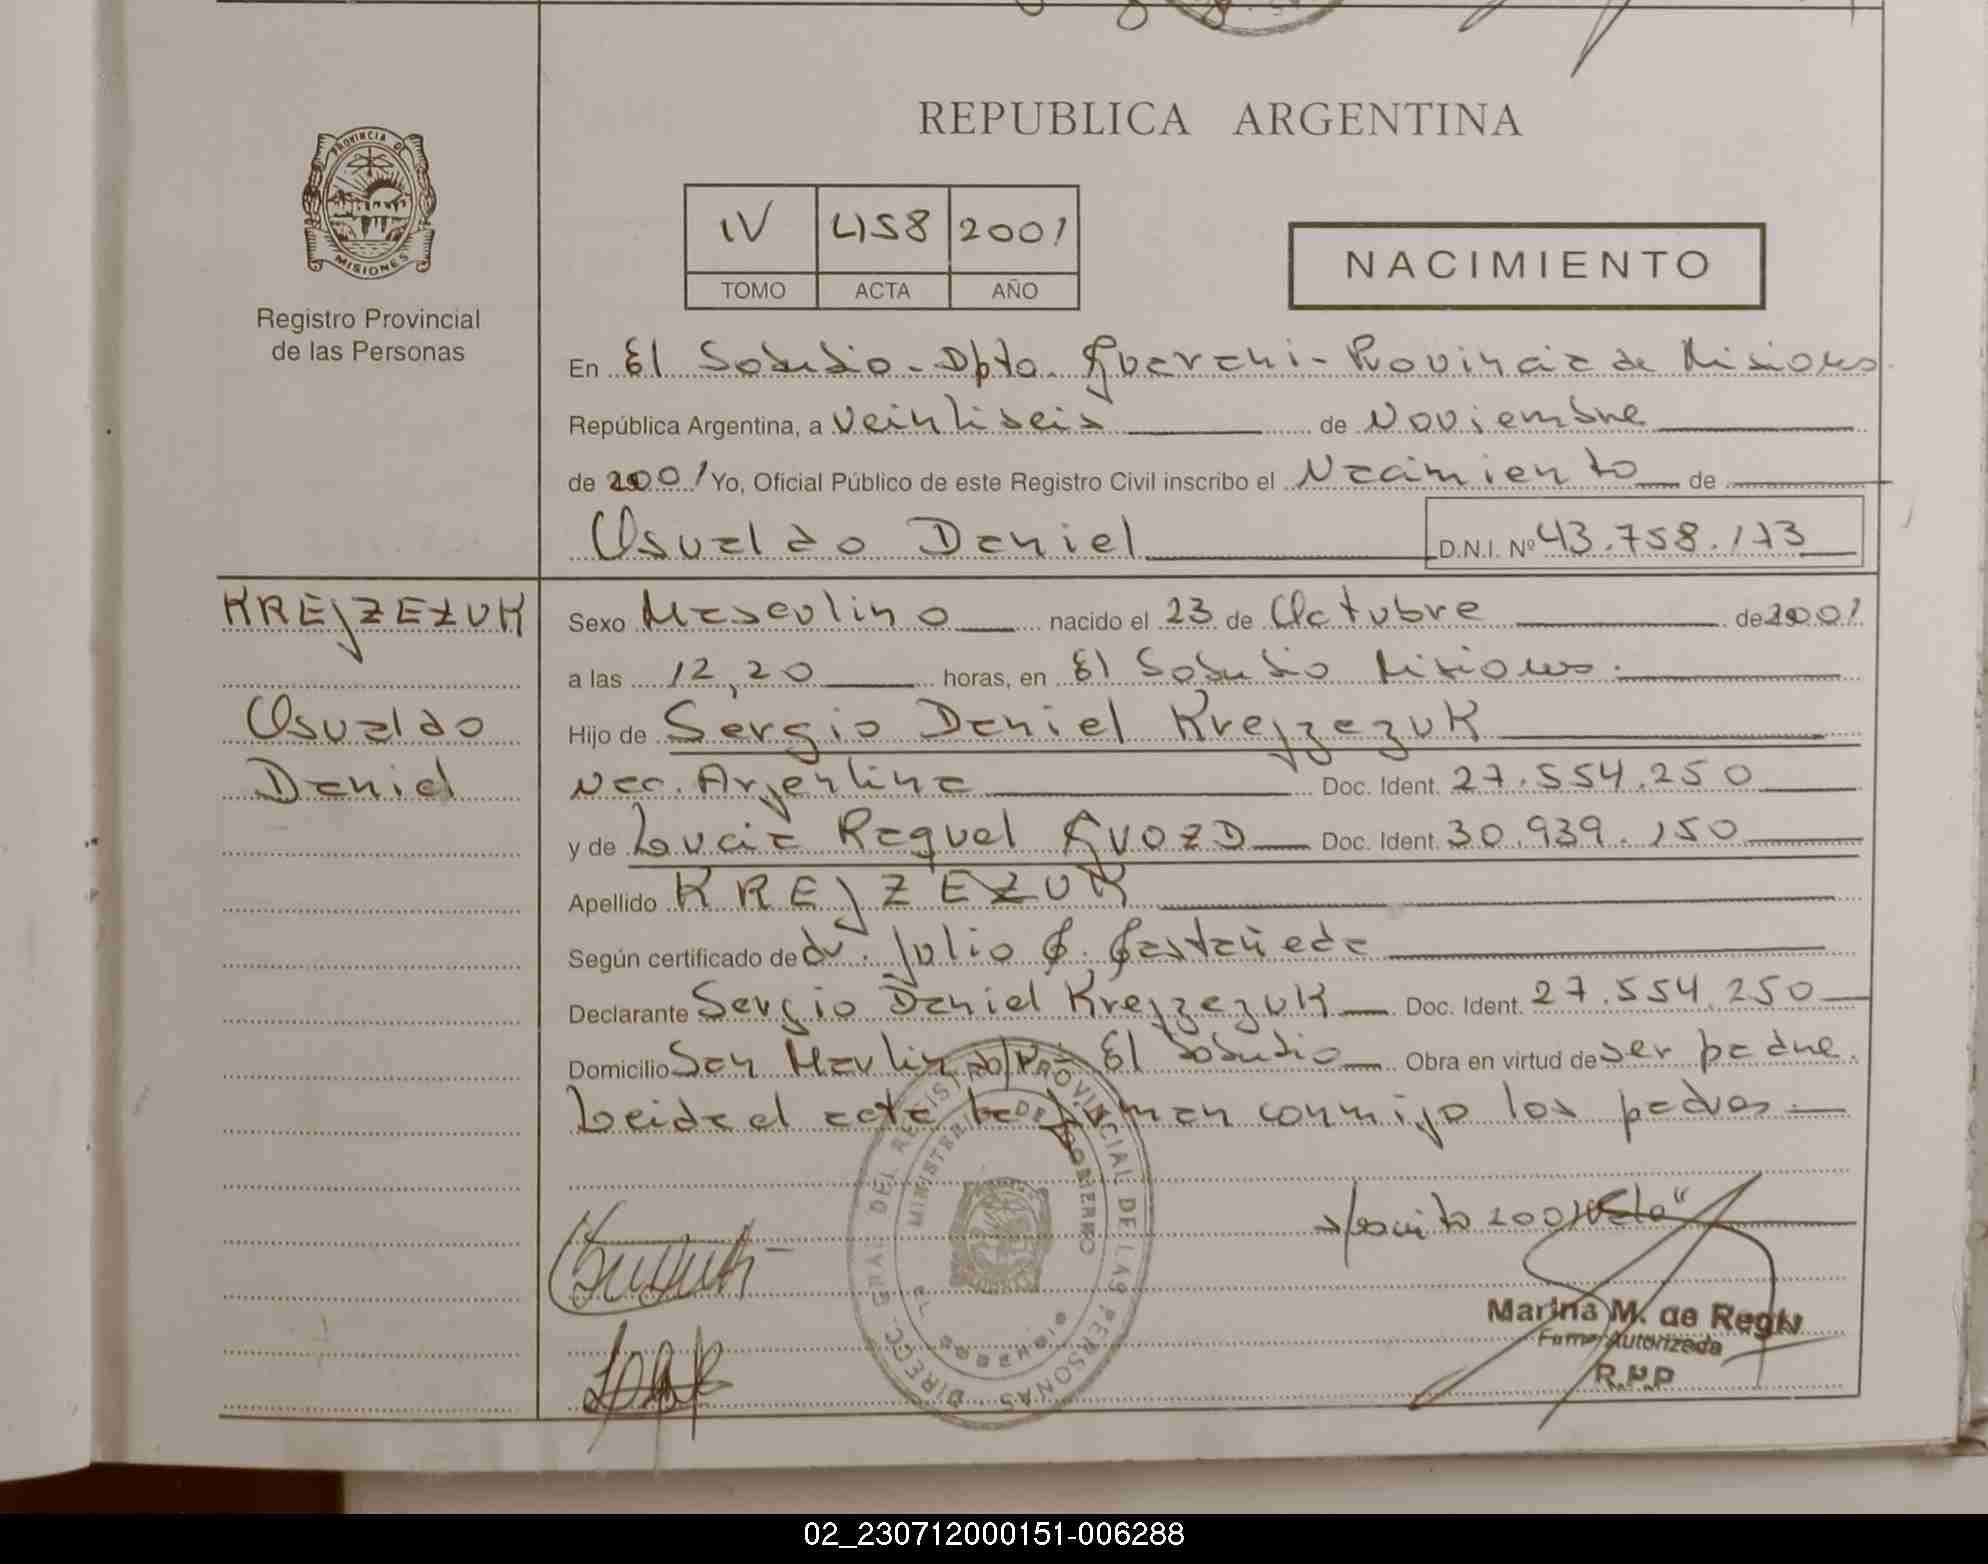 REPUBLICA ARGENTINA
PROVINCIA DE
MISIONES
Registro Provincial
de las Personas
IV 458 2001
TOMO ACTA AÑO
NACIMIENTO
En El Soberbio - Dpto. Guarani - Provincia de Misiones
República Argentina, a Veintiseis de Noviembre
de 2001 Yo, Oficial Público de este Registro Civil inscribo el Nacimiento de
Osvaldo Daniel D.N.I. Nº 43.758.173
KREJZEZUK
Osvaldo
Daniel
Sexo Masculino nacido el 23 de Octubre de 2001
a las 12,20 horas, en El Soberbio Misiones.
Hijo de Sergio Daniel Krejzezuk
Nac. Argentina Doc. Ident. 27.554.250
y de Lucia Raquel GVOZD Doc. Ident. 30.939.150
Apellido KREJZEZUK
Según certificado de dr. Julio G. Gastañeda
Declarante Sergio Daniel Krejzezuk Doc. Ident. 27.554.250
Domicilio San Martin El Soberbio Obra en virtud de ser padre.
Leida el acta la firman conmigo los padres.
DIREC. GRAL. DEL REGISTRO PROVINCIAL DE LAS PERSONAS
MINISTERIO DE GOBIERNO
2001 Vale"
Marina M. de Regis
Firma Autorizada
R.P.P
02_230712000151-006288